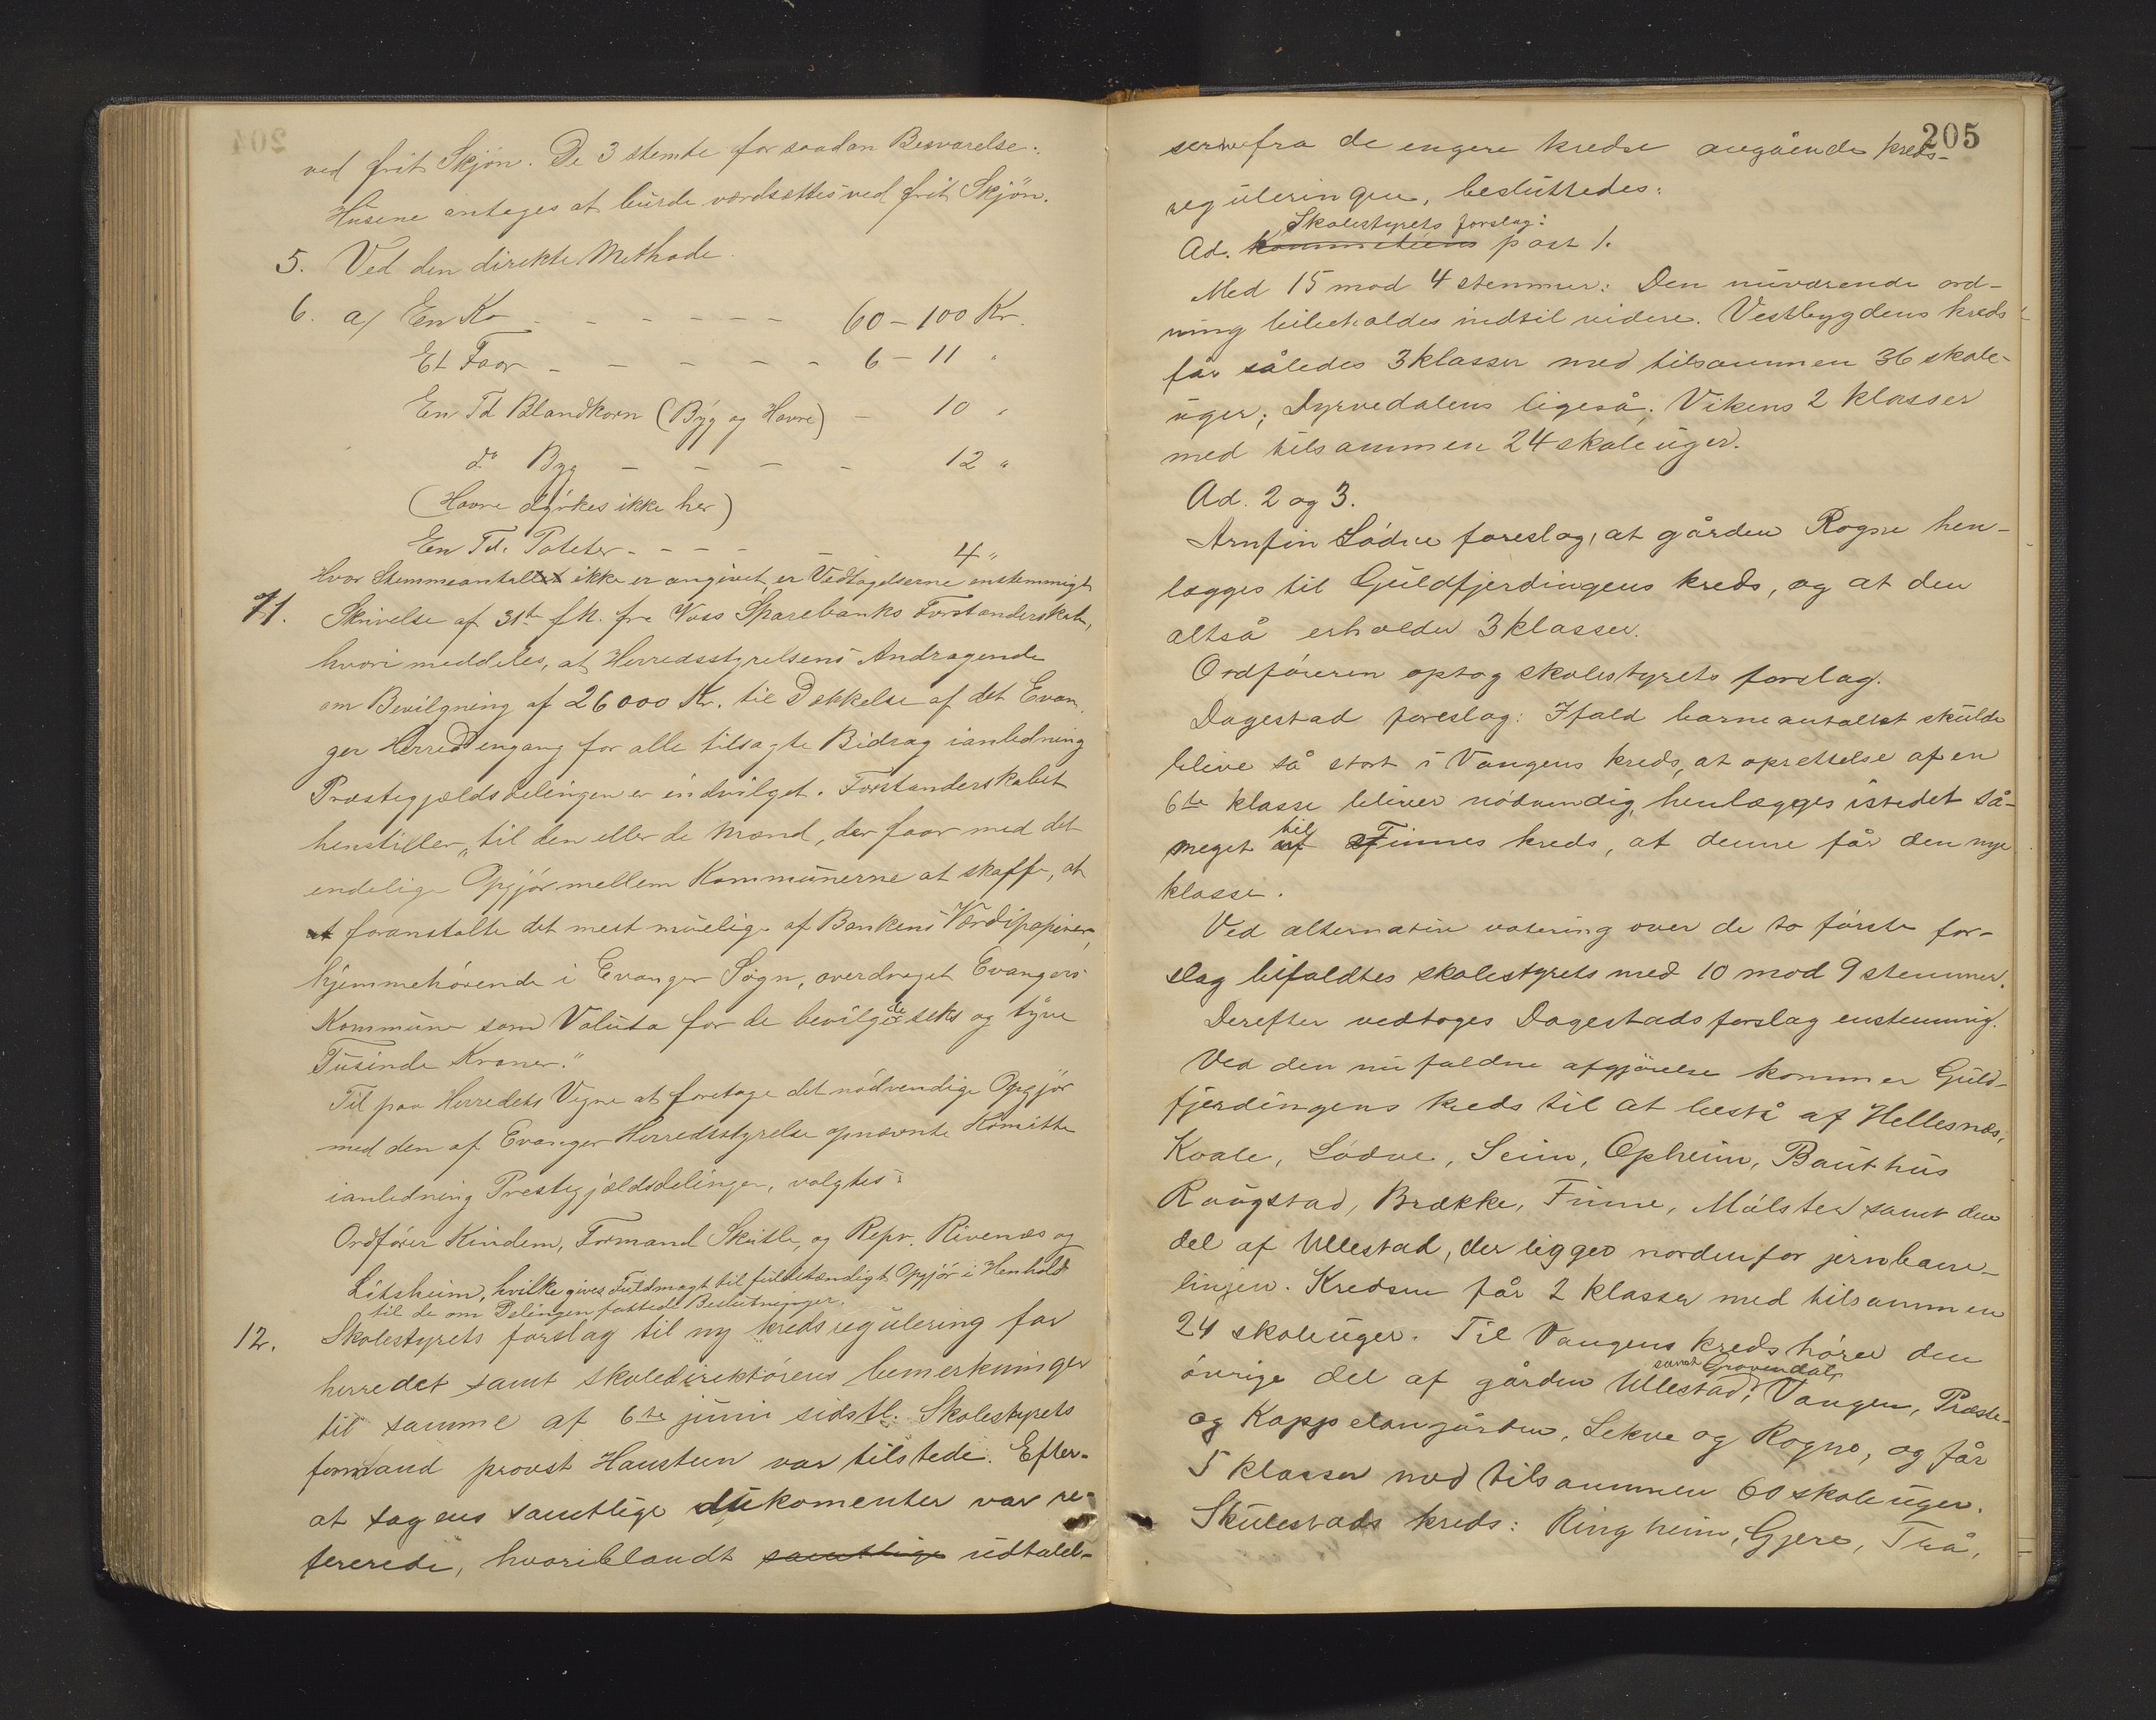 ved frit Skjøn. De 3 stemte for saadan Besvarelse:
Husene antages at burde værdsættes ved frit Skjøn.
5. Ved den direkte Methode.
6. a/ En Ko - - - - - - 60-100 Kr.
Et Faar - - - - - 6-11 "
En Td Blandkorn (Byg og Havre) - 10 "
do Byg - - - - 12 "
(Havre dyrkes ikke her)
En Td. Poteter - - - - 4 "
Hvor Stemmeantallet ikke er angivet, er Vedtagelserne enstemmigt
11. Skrivelse af 31te f.M. fra Voss Sparebanks Forstanderskab,
hvori meddeles, at Herredsstyrelsens Andragende
om Bevilgning af 26000 Kr. til Dækkelse af det Evan-
ger Herred engang for alle tilsagte Bidrag ianledning
Præstegjældsdelingen er indvilget. Forstanderskabet
henstiller "til den eller de Mænd, der faar med det
endelige Opgjør mellem Kommunerne at skaffe, at
at foranstalte det mest muelige af Bankens Værdipapirer,
hjemmehørende i Evanger Sogn, overdraget Evangers
Kommune som Valuta for de bevilgede seks og tyve
Tusinde Kroner."
Til paa Herredets Vegne at foretage det nødvendige Opgjør
med den af Evanger Herredsstyrelse opnævnte Komitte
ianledning Prestegjældsdelingen, valgtes:
Ordfører Kindem, Formand Skutle, og Repr. Rivenæs og
Litsheim, hvilke gives Fuldmagt til fuldstændigt Opgjør i Henhold
til de om Delingen fattede Beslutninger.
12. Skolestyrets forslag til ny kredsregulering for
herredet samt skoledirektørens bemerkninger
til samme af 6te juni sidstl. Skolestyrets
formand provst Haustun var tilstede. Efter-
at sagens samtlige dukomenter var re-
fererede, hvoriblandt samtlige udtalel-
205
serne fra de engere kredse angående kreds-
reguleringen, besluttedes:
Skolestyrets forslag:
Ad. kommiteens post 1.
Med 15 mod 4 stemmer: Den nuværende ord-
ning bibeholdes indtil videre. Vestbygdens kreds
får således 3 klasser med tilsammen 36 skole-
uger; Dyrvedalens ligeså. Vikens 2 klasser
med tilsammen 24 skoleuger.
Ad. 2 og 3.
Arnfin Lødve foreslog, at gården Rogne hen-
lægges til Guldfjerdingens kreds, og at den
altså erholder 3 klasser.
Ordføreren optog skolestyrets forslag.
Dagestad foreslog: Ifald barneantallet skulde
blive så stort i Vangens kreds, at oprettelse af en
6te klasse bliver nødvendig, henlægges istedet så-
meget af til Finnes kreds, at denne får den nye
klasse.
Ved alternativ votering over de to første for-
slag bifaldtes skolestyrets med 10 mod 9 stemmer.
Derefter vedtoges Dagestads forslag enstemmig.
Ved den nu faldne afgjørelse kommer Guld-
fjerdingens kreds til at bestå af Hellesnæs,
Kvale, Lødve, Seim, Opheim, Bauthus
Raugstad, Brække, Finne, Mølster samt den
del af Ullestad, der ligger nordenfor jernbane-
linjen. Kredsen får 2 klasser med tilsammen
24 skoleuger. Til Vangens kreds hører den
øvrige del af gården Ullestad, samt Gravendal, Vangen, Præste-
og Kappelangården, Lekve og Rogne, og får
5 klasser med tilsammen 60 skoleuger.
Skulestads kreds: Ringheim, Gjere, Trå,